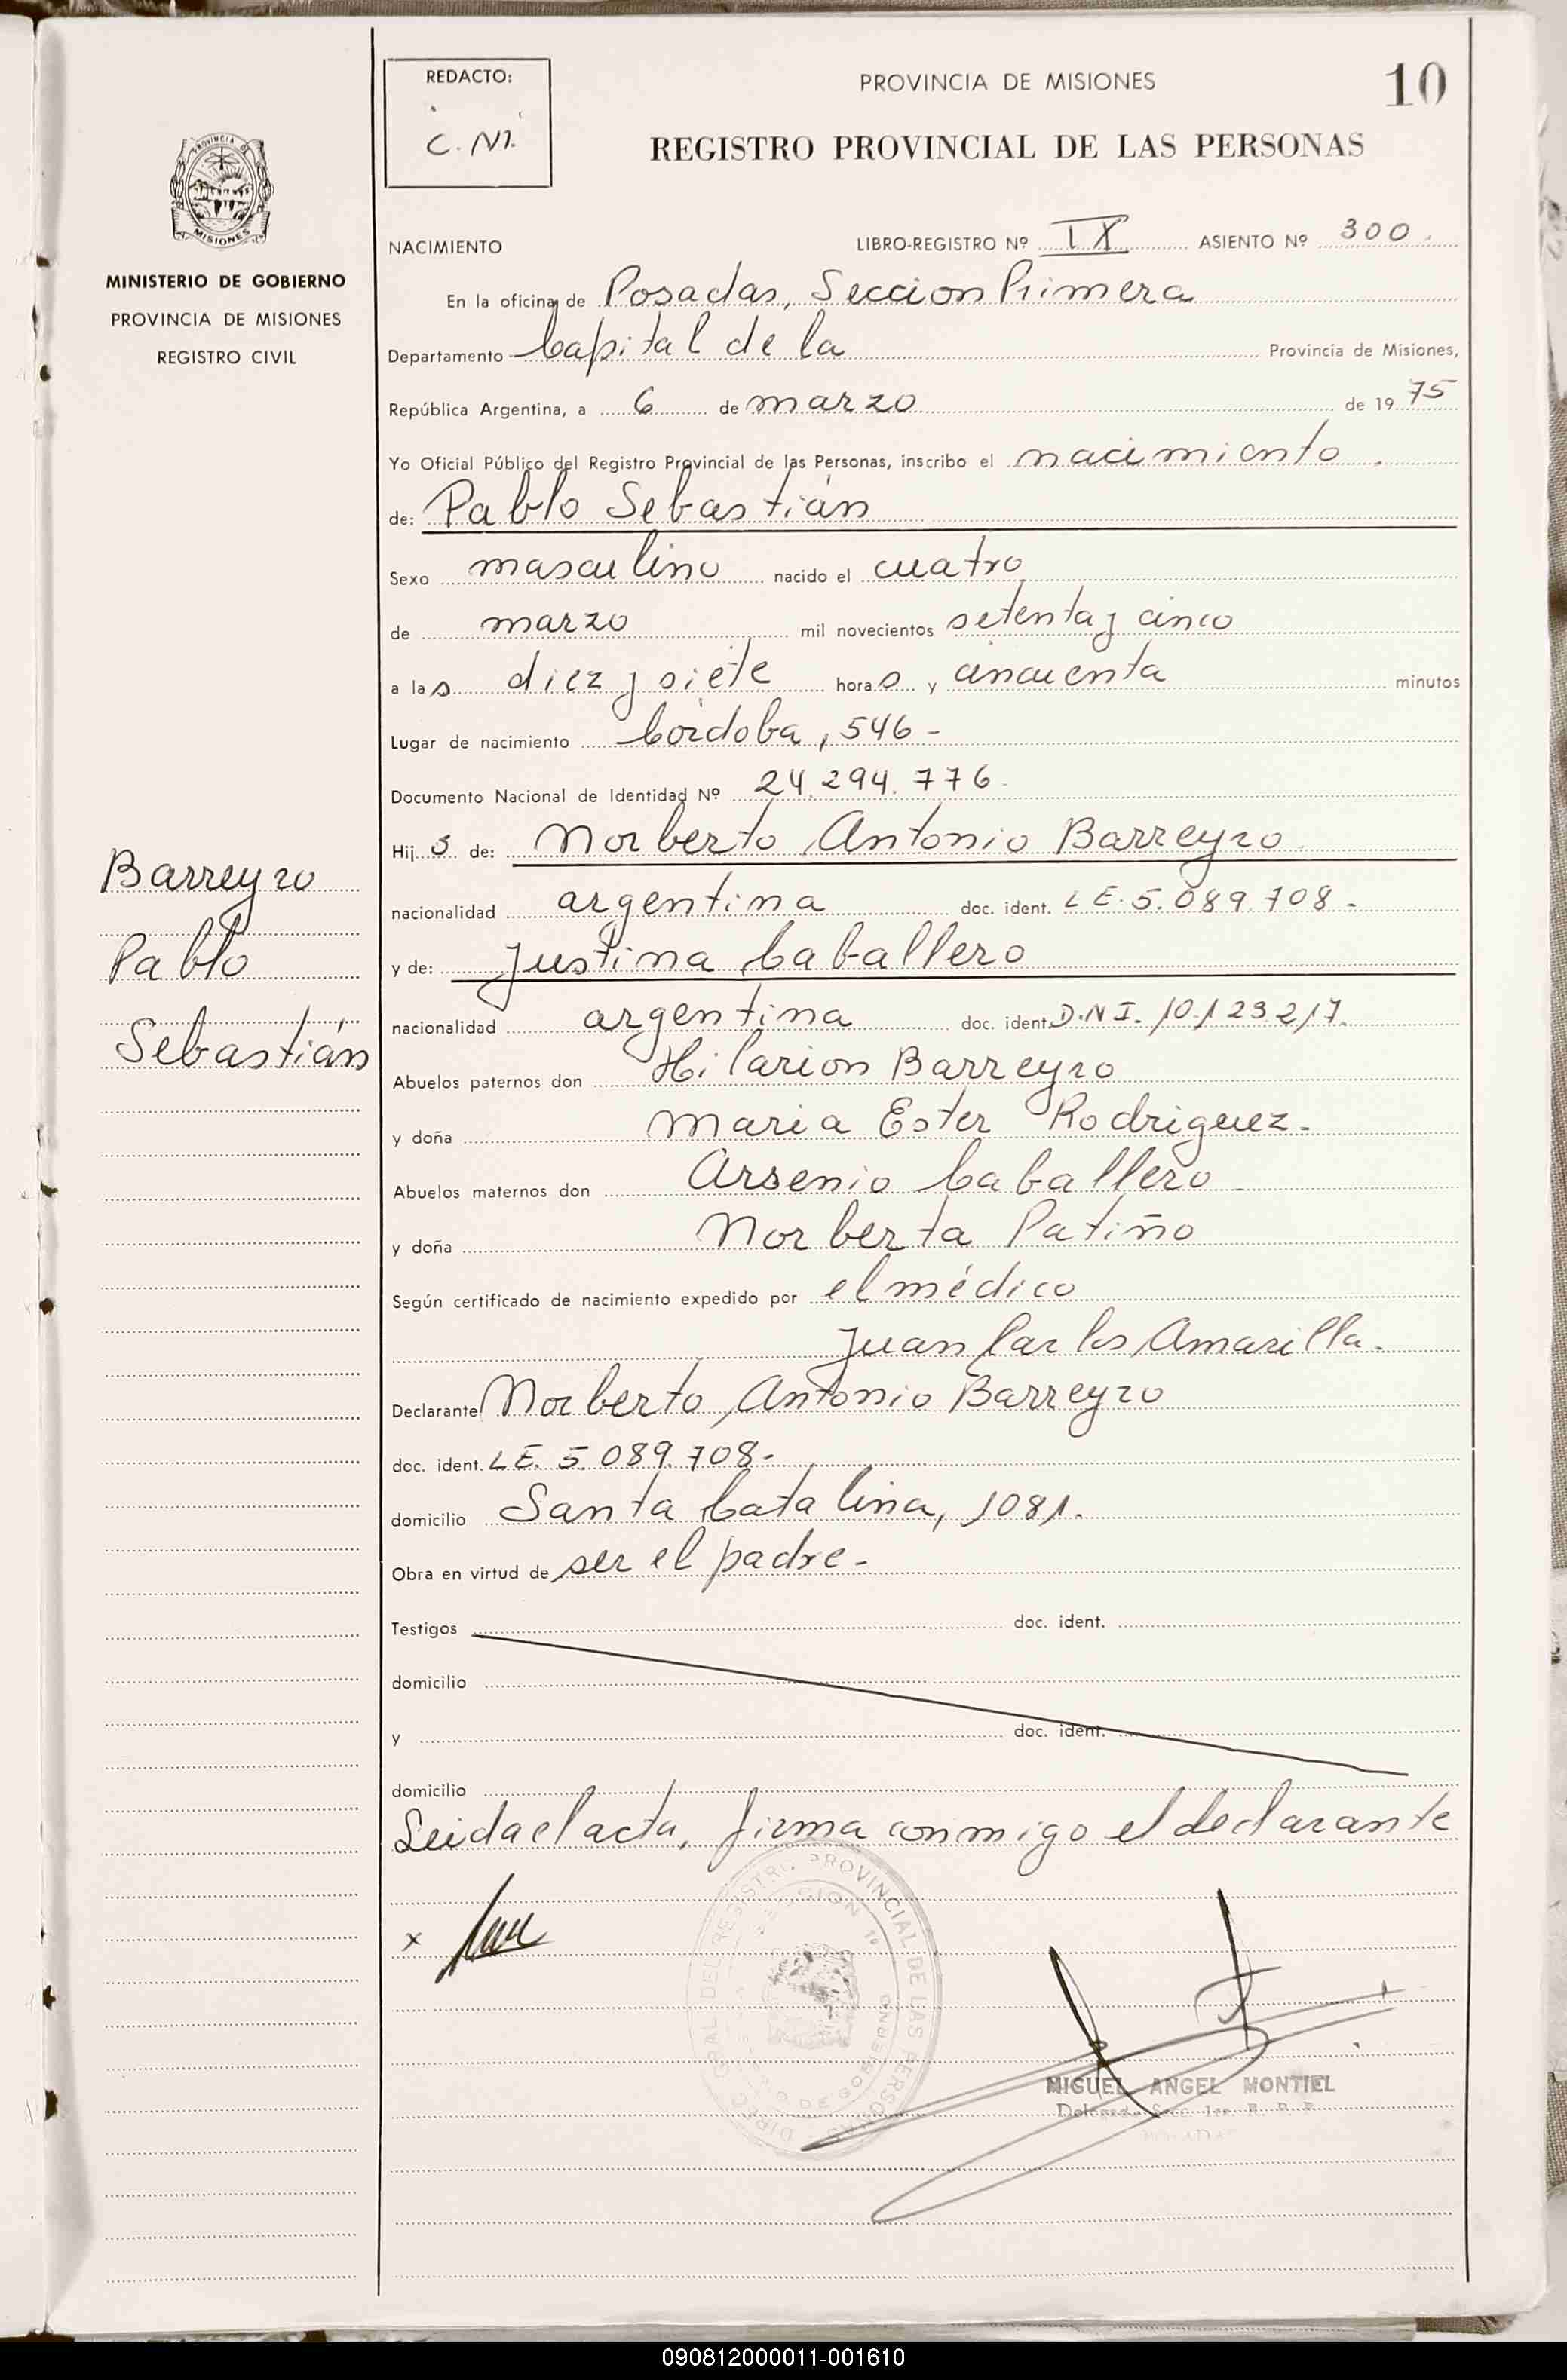 REDACTO:
C. M.
PROVINCIA DE MISIONES
10
REGISTRO PROVINCIAL DE LAS PERSONAS
PROVINCIA DE
MISIONES
MINISTERIO DE GOBIERNO
PROVINCIA DE MISIONES
REGISTRO CIVIL
NACIMIENTO LIBRO-REGISTRO Nº IX ASIENTO Nº 300.
En la oficina de Posadas, Seccion Primera
Departamento Capital de la Provincia de Misiones,
República Argentina, a 6 de marzo de 1975
Yo Oficial Público del Registro Provincial de las Personas, inscribo el nacimiento.
de: Pablo Sebastián
Sexo masculino nacido el cuatro
de marzo mil novecientos setenta y cinco
a las diez y siete horas y cincuenta minutos
Lugar de nacimiento Córdoba, 546-
Documento Nacional de Identidad Nº 24.294.776-
Hijo de: Norberto Antonio Barreyro
nacionalidad argentina doc. ident. L E. 5.089.708-
y de: Justina Caballero
nacionalidad argentina doc. ident. D.N I. 10.123.217.
Abuelos paternos don Hilarion Barreyro
y doña Maria Ester Rodriguez-
Abuelos maternos don Arsenio Caballero
y doña Norberta Patiño
Según certificado de nacimiento expedido por el médico
Juan Carlos Amarilla.
Declarante Norberto Antonio Barreyro
doc. ident. L E. 5.089.708-
domicilio Santa Catalina, 1081.
Obra en virtud de ser el padre-
Testigos doc. ident.
domicilio
y doc. ident.
domicilio
Leida el acta, firma conmigo el declarante
Barreyro
Pablo
Sebastián
x
DIREC. GRAL DEL REGISTRO PROVINCIAL DE LAS PERSONAS
SECCION 1ª
DE GOBIERNO
MIGUEL ANGEL MONTIEL
090812000011-001610